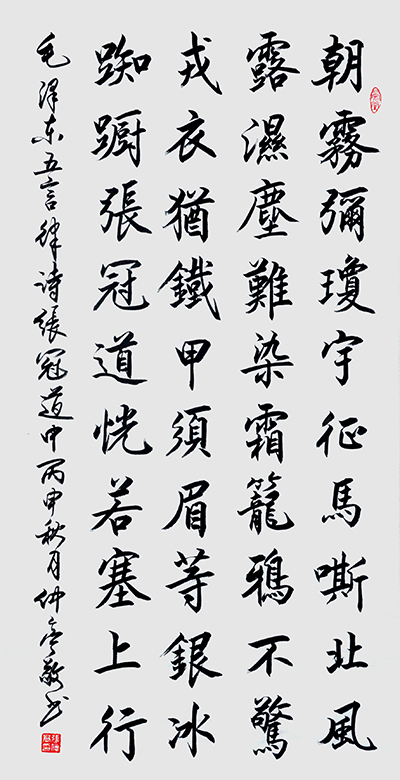 朝霧彌瓊宇征馬嘶北風
露濕塵難染霜籠鴉不驚
戎衣猶鐵甲須眉等銀冰
踟蹰張冠道恍若塞上行
毛泽东五言律诗張冠道中丙申秋月仲敬书